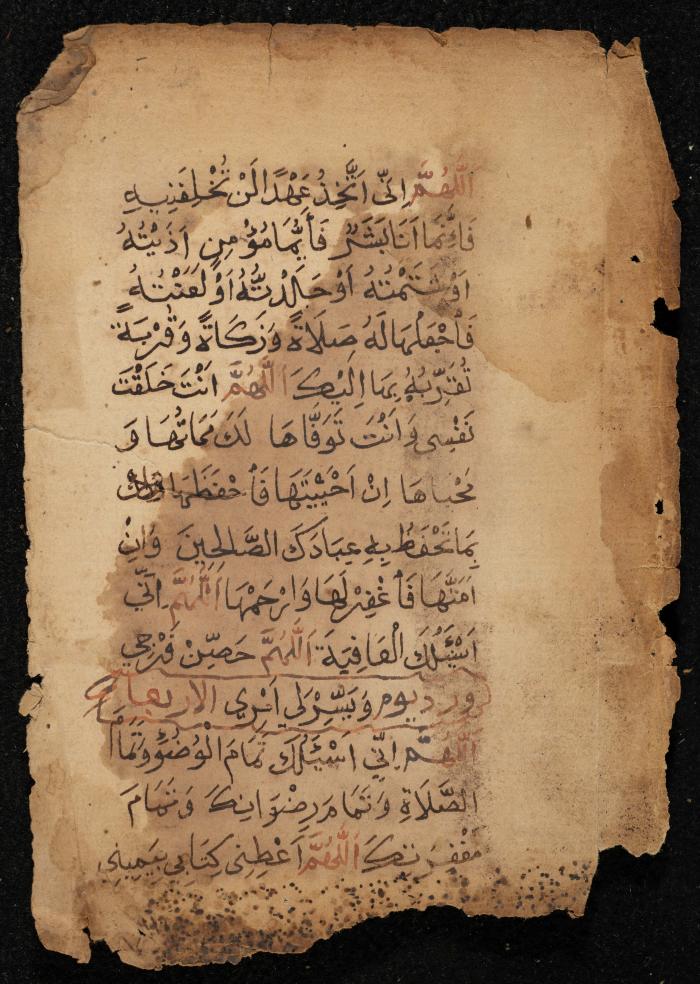 اَللّٰهُمَّ اِنِّى اَتَّخِذُ عَهْدًا لَنْ تُخْلِفَنِيهِ
فَاِنَّمَا اَنَا بَشَرٌ فَاَيُّمَا مُؤْمِنٍ اٰذَيْتُهُ
اَوْ شَتَمْتُهُ اَوْ جَلَدْتُهُ اَوْ لَعَنْتُهُ
فَاجْعَلْهَا لَهُ صَلَاةً وَزَكَاةً وَقُرْبَةً
تُقَرِّبُهُ بِهَا اِلَيْكَ اَللّٰهُمَّ اَنْتَ خَلَقْتَ
نَفْسِى وَاَنْتَ تَوَفَّاهَا لَكَ مَمَاتُهَا وَ
مَحْيَاهَا اِنْ اَحْيَيْتَهَا فَاحْفَظْهَا
بِمَا تَحْفَظُ بِهِ عِبَادَكَ الصَّالِحِينَ وَاِنْ
اَمَتَّهَا فَاغْفِرْ لَهَا وَارْحَمْهَا اَللّٰهُمَّ اِنِّى
اَسْئَلُكَ الْعَافِيَةَ اَللّٰهُمَّ حَصِّنْ فَرْجِى
ورد يوم وَيَسِّرْ لِى اَمْرِى الاربعاء
اَللّٰهُمَّ اِنِّى اَسْئَلُكَ تَمَامَ الْوُضُوءِ وَتَمَامَ
الصَّلَاةِ وَتَمَامَ رِضْوَانِكَ وَتَمَامَ
مَغْفِرَتِكَ اَللّٰهُمَّ اَعْطِنِى كِتَابِى بِيَمِينِى